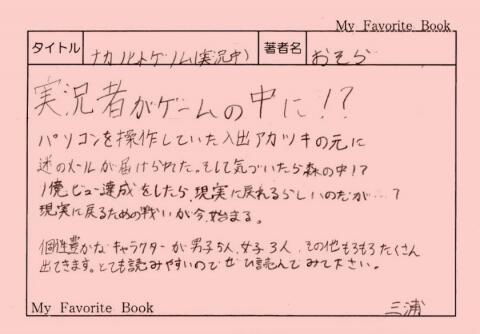 My Favorite Book
タイトル ナカノヒトゲノム(実況中) 著者名 おそら
実況者がゲームの中に!?
パソコンを操作していた入出アカツキの元に
迷のメールが届けられた。そして気づいたら森の中!?
1億ビュー達成をしたら、現実に戻れるらしいのだが…?
現実に戻るための戦いが今、始まる。
個性豊かなキャラクターが男子5人、女子3人、その他もろもろたくさん
出てきます。とても読みやすいのでぜひ読んでみて下さい。
My Favorite Book 三浦